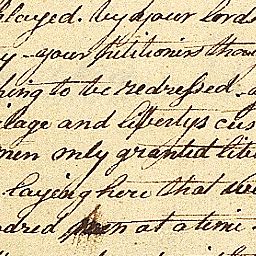 played. by your lords
y - your Petitioners thou
hing to be redressed - a
ilage and libbertys cus
men only granted libe
laying here that we
ndred men at a time.